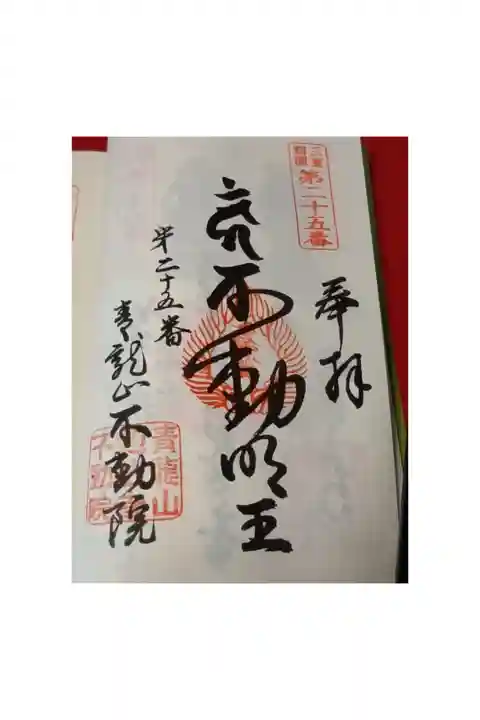 三重
四国
第二十五番
奉拝
不動明王
第二十五番
青龍山不動院
青龍山
不動院